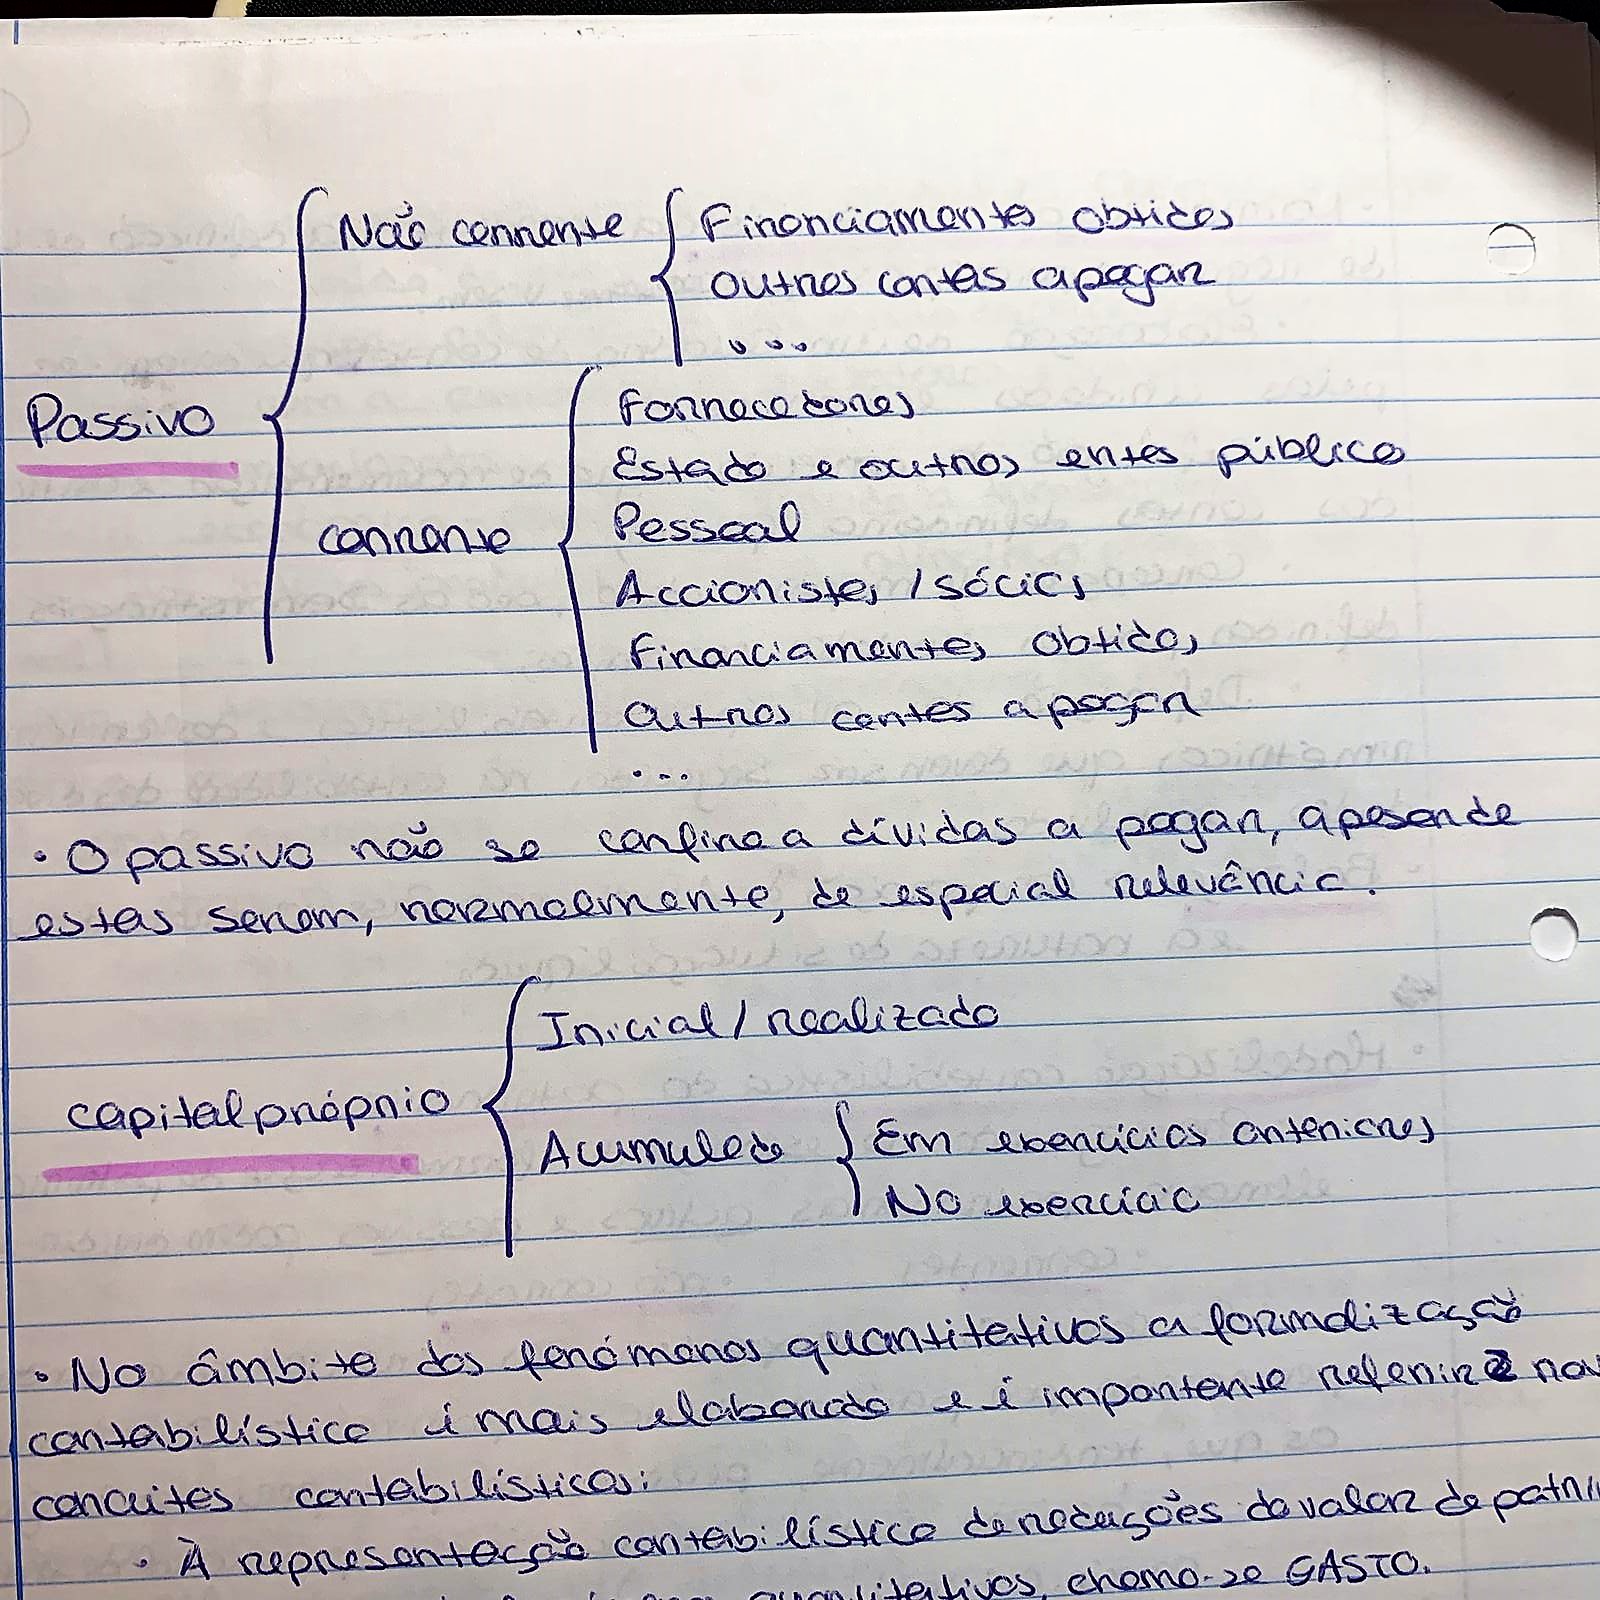 Passivo
Não corrente
Financiamentos obtidos
Outras contas a pagar
...
corrente
Fornecedores
Estado e outros entes público
Pessoal
Accionistas / sócios
Financiamentos obtidos
Outras contas a pagar
...
• O passivo não se confina a dívidas a pagar, apesar de
estas serem, normalmente, de especial relevância.
capital próprio
Inicial / realizado
Acumulado
Em exercícios anteriores
No exercício
• No âmbito dos fenómenos quantitativos a formalização
contabilística é mais elaborado e é importante referir 2
conceitos contabilísticos:
• À representação contabilística de reduções do valor de
quantitativos, chama-se GASTO.